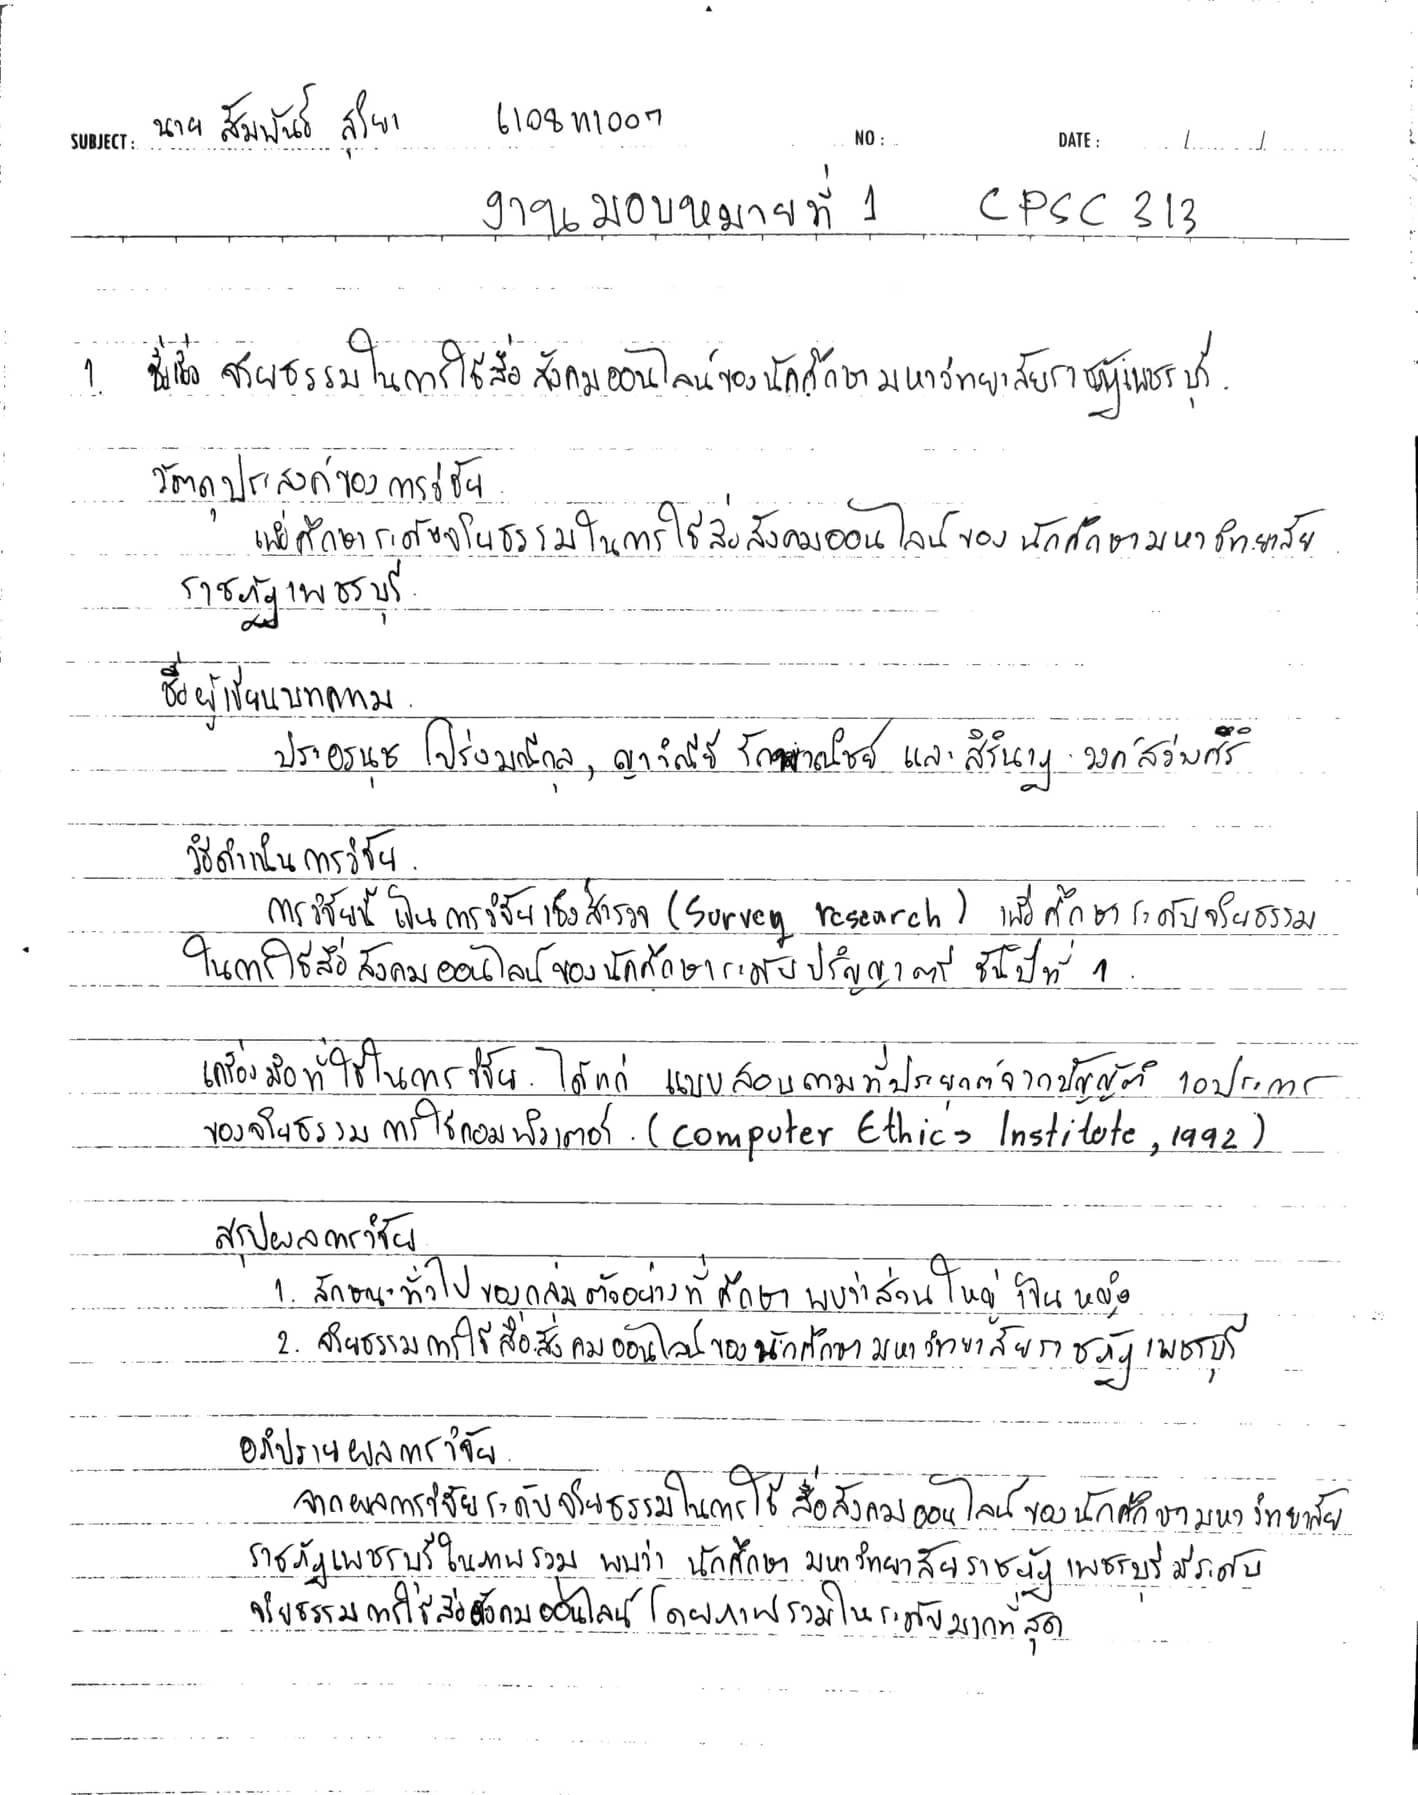 SUBJECT: นาย สัมพันธ์ สุริยา 6108111007 NO : DATE : / /
งานมอบหมายที่ 1 CPSC 313
1. ชื่อเรื่อง จริยธรรมในการใช้สื่อสังคมออนไลน์ของนักศึกษามหาวิทยาลัยราชภัฏเพชรบุรี.
วัตถุประสงค์ของการวิจัย
เพื่อศึกษาระดับจริยธรรมในการใช้สื่อสังคมออนไลน์ของนักศึกษามหาวิทยาลัย
ราชภัฏเพชรบุรี.
ชื่อผู้เขียนบทความ.
ประอรนุช โปร่งมณีกุล, ญาวิณีย์ รักพาณิชย์ และ สิรินาฏ วงศ์สว่างศิริ
วิธีดำเนินการวิจัย.
การวิจัยนี้ เป็นการวิจัยเชิงสำรวจ (Survey research) เพื่อศึกษาระดับจริยธรรม
ในการใช้สื่อสังคมออนไลน์ของนักศึกษาระดับปริญญาตรี ชั้นปีที่ 1.
เครื่องมือที่ใช้ในการวิจัย. ได้แก่ แบบสอบถามที่ประยุกต์จากบัญญัติ 10 ประการ
ของจริยธรรมการใช้คอมพิวเตอร์. (Computer Ethic's Institute, 1992)
สรุปผลการวิจัย
1. ลักษณะทั่วไปของกลุ่มตัวอย่างที่ศึกษา พบว่าส่วนใหญ่เป็นหญิง
2. จริยธรรมการใช้สื่อสังคมออนไลน์ของนักศึกษามหาวิทยาลัยราชภัฏเพชรบุรี
อภิปรายผลการวิจัย.
จากผลการวิจัยระดับจริยธรรมในการใช้สื่อสังคมออนไลน์ของนักศึกษามหาวิทยาลัย
ราชภัฏเพชรบุรีในภาพรวม พบว่า นักศึกษามหาวิทยาลัยราชภัฏเพชรบุรีมีระดับ
จริยธรรมการใช้สื่อสังคมออนไลน์ โดยภาพรวมในระดับมากที่สุด